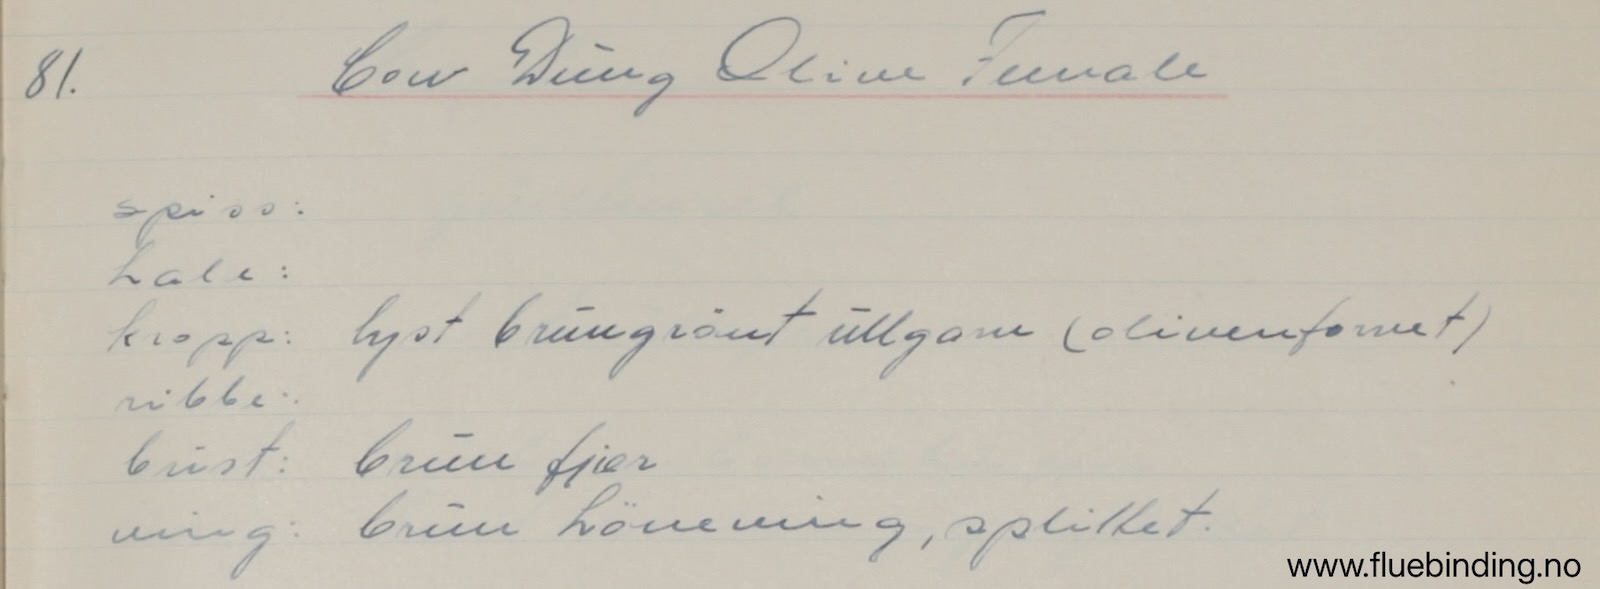 81. Cow Dung Olive Female
spiss:
hale:
kropp: lyst brungrönt ullgarn (olivenfarvet)
ribbe:
bust: brun fjær
ving: brun höneving, splittet.
www.fluebinding.no